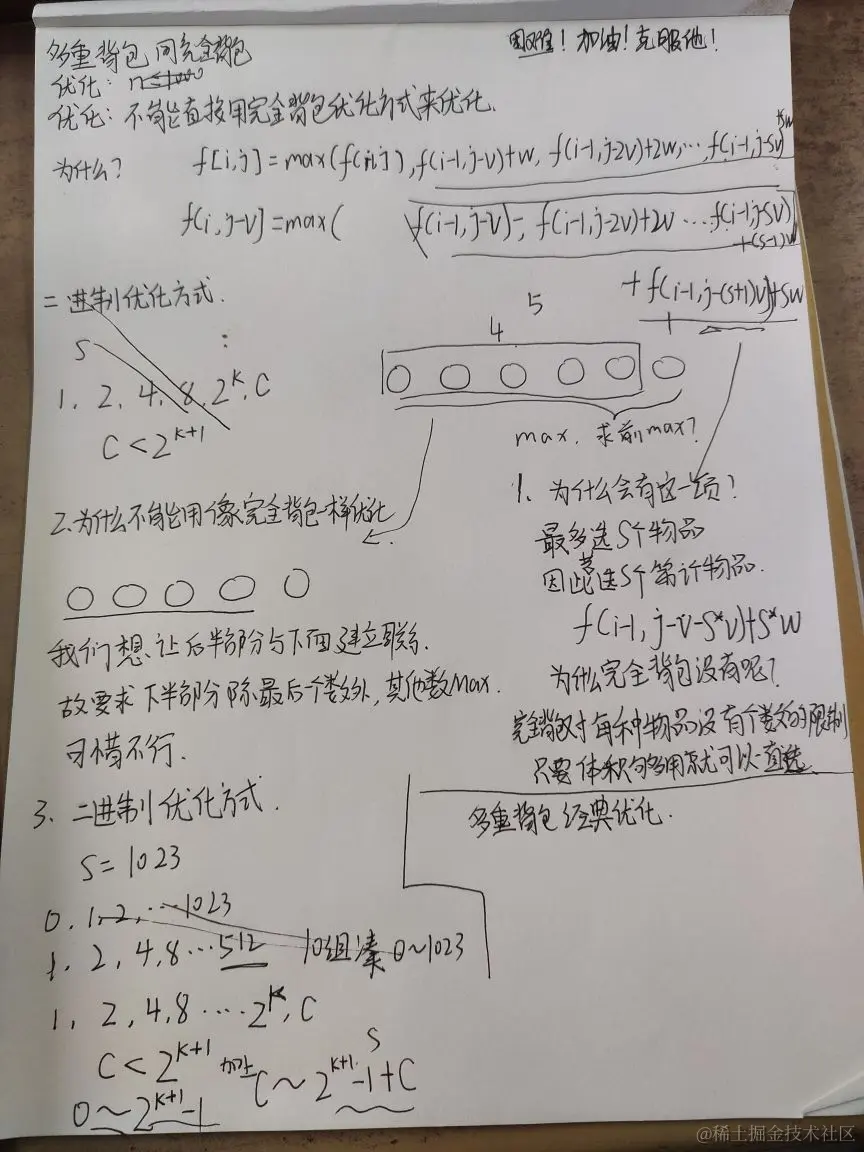 多重背包 同完全背包
困难! 加油! 克服他!
优化: n≤1000
优化: 不能直接用完全背包优化方式来优化.
为什么?
f[i,j]=max(f(i,j), f(i-1,j-v)+w, f(i-1,j-2v)+2w, … f(i-1,j-sv)+sw
f(i,j-v]=max( f(i-1,j-v)-, f(i-1,j-2v)+2w … f(i-1,j-sv)+(s-1)w
+f(i-1,j-(s+1)v)+sw
二进制优化方式.
S
1, 2, 4, 8, 2^k, C
C < 2^{k+1}
4 5
max. 求前max?
1. 为什么会有这一项?
最多选S个物品
因此若选S个第i个物品.
f(i-1, j-v-s*v)+s*w
为什么完全背包没有呢?
完全背包对每种物品没有个数的限制
只要体积够多用就可以一直选
2.为什么不能用像完全背包一样优化
我们想让后半部分与下面建立联系.
故要求下半部分除最后个数外,其他数Max.
可惜不行.
多重背包经典优化.
3. 二进制优化方式.
S=1023
0, 1, 2, …1023
1, 2, 4, 8 … 512 10组凑0~1023
1, 2, 4, 8 …. 2^k, C
C < 2^{k+1} 加上 C ~ 2^{k+1}-1+C
S
0 ~ 2^{k+1}-1
@稀土掘金技术社区